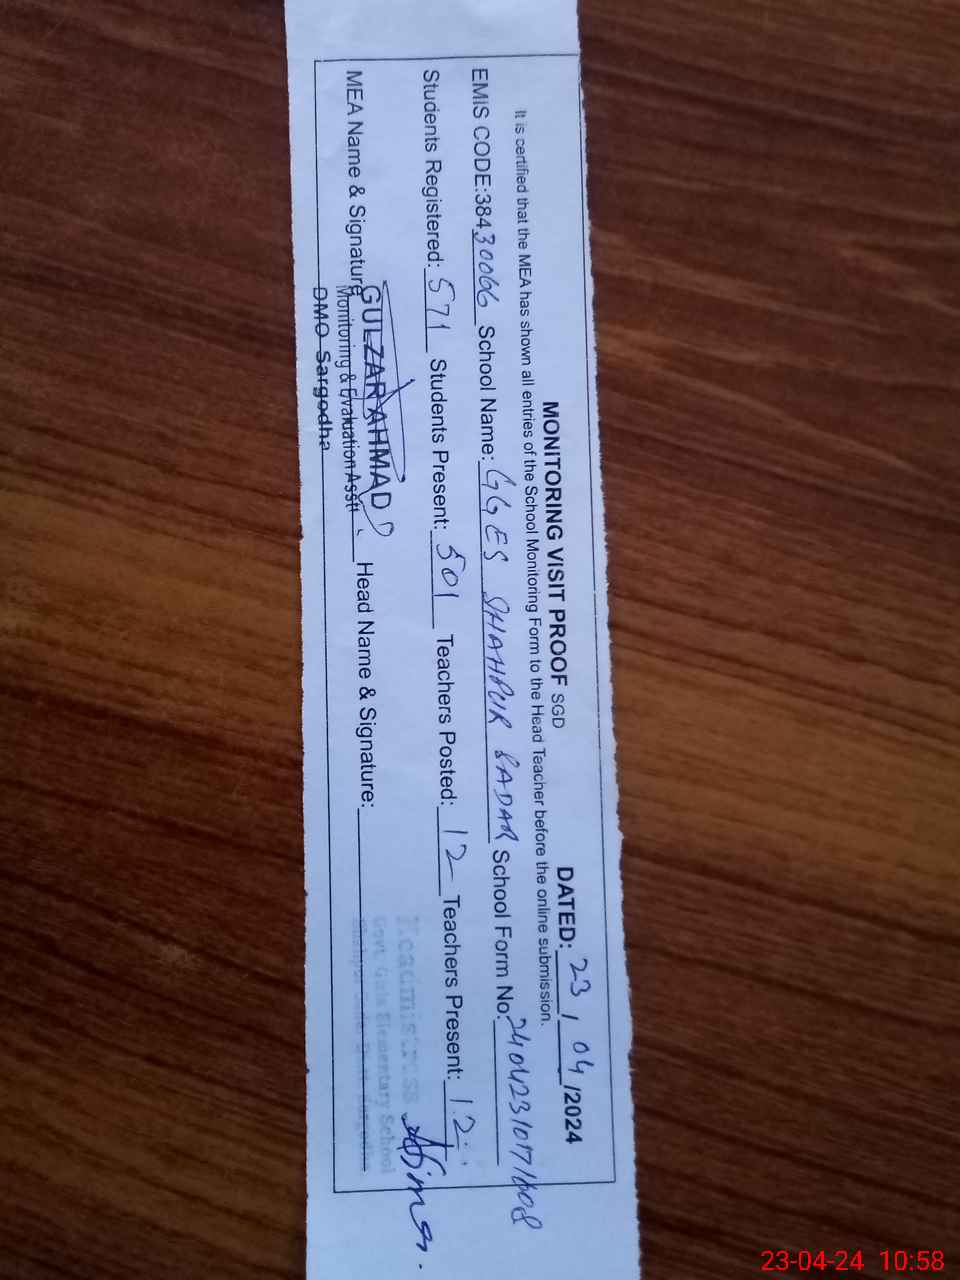 MONITORING VISIT PROOF SGD DATED: 23/04/2024
It is certified that the MEA has shown all entries of the School Monitoring Form to the Head Teacher before the online submission.
EMIS CODE:38430066 School Name: GGES SHAHPUR SADAR School Form No: 24042310171608
Students Registered: 571 Students Present: 501 Teachers Posted: 12 Teachers Present: 12
MEA Name & Signature Head Name & Signature:
GULZAR AHMAD
Monitoring & Evaluation Asstt
DMO Sargodha
Headmistress
Govt. Girls Elementary School
Shahpur Sadar Distt. Sargodha
23-04-24 10:58